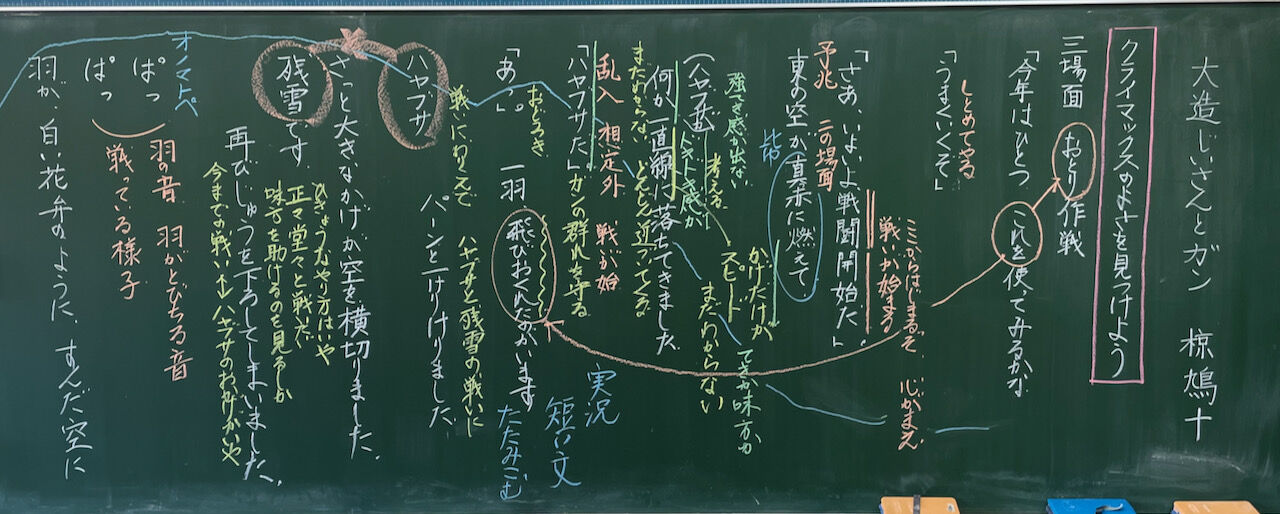 大造じいさんとガン　椋鳩十
クライマックスのよさを見つけよう
三場面　おとり作戦
「今年はひとつ、これを使ってみるかな
しとめてやる
「うまくいくぞ」
ここからはじまるぞ　心がまえ
戦いが始まる
「さあ、いよいよ戦闘開始だ。」
予兆　二の場面
東の空が真赤に燃えて
かげだけか　てきか味方か
スピード　まだわからない
強さ感が出ない　考える
スピード感が
何か一直線に落ちてきました
まだわからない　どんどん迫ってくる
乱入　想定外　戦が始
「ハヤブサだ」ガンの群れを守る
おどろき
「あっ。」
一羽　飛びおくれたのがいます
実況
短い文
たたみこむ
戦いにわりこんで　ハヤブサと残雪の戦いに
ハヤブサ　パーンと一けりけりました、
さっと大きなかげが空を横切りました、
残雪です
ひきょうなやり方はいや
正々堂々と戦だ
味方を助けるのを見るしか
再びじゅうを下ろしてしまいました、
今までの戦い↔ハヤブサのおかげがいや
オノマトペ
ぱっ
ぱっ
羽の音　羽がとびちる音
戦っている様子
羽が、白い花弁のように、すんだ空に